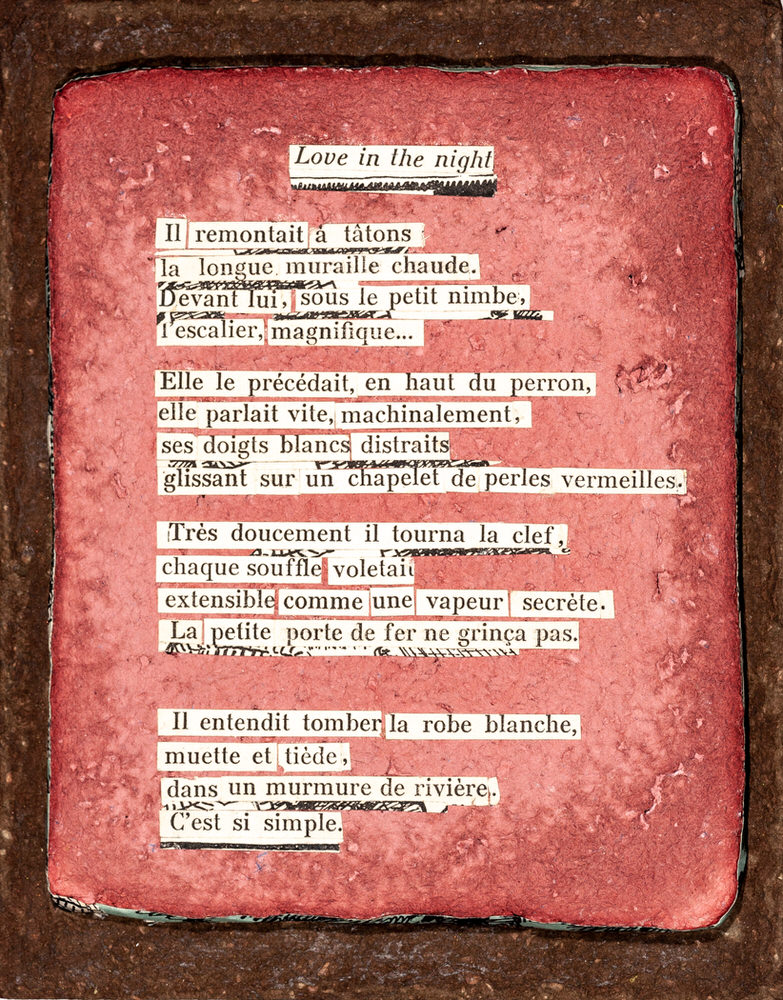 Love in the night
Il remontait á tâtons
la longue muraille chaude.
Devant lui, sous le petit nimbe,
l'escalier, magnifique...
Elle le précédait, en haut du perron,
elle parlait vite, machinalement,
ses doigts blancs distraits
glissant sur un chapelet de perles vermeilles.
Très doucement il tourna la clef,
chaque souffle voletait
extensible comme une vapeur secrète.
La petite porte de fer ne grinça pas.
Il entendit tomber la robe blanche,
muette et tiède,
dans un murmure de rivière.
C'est si simple.